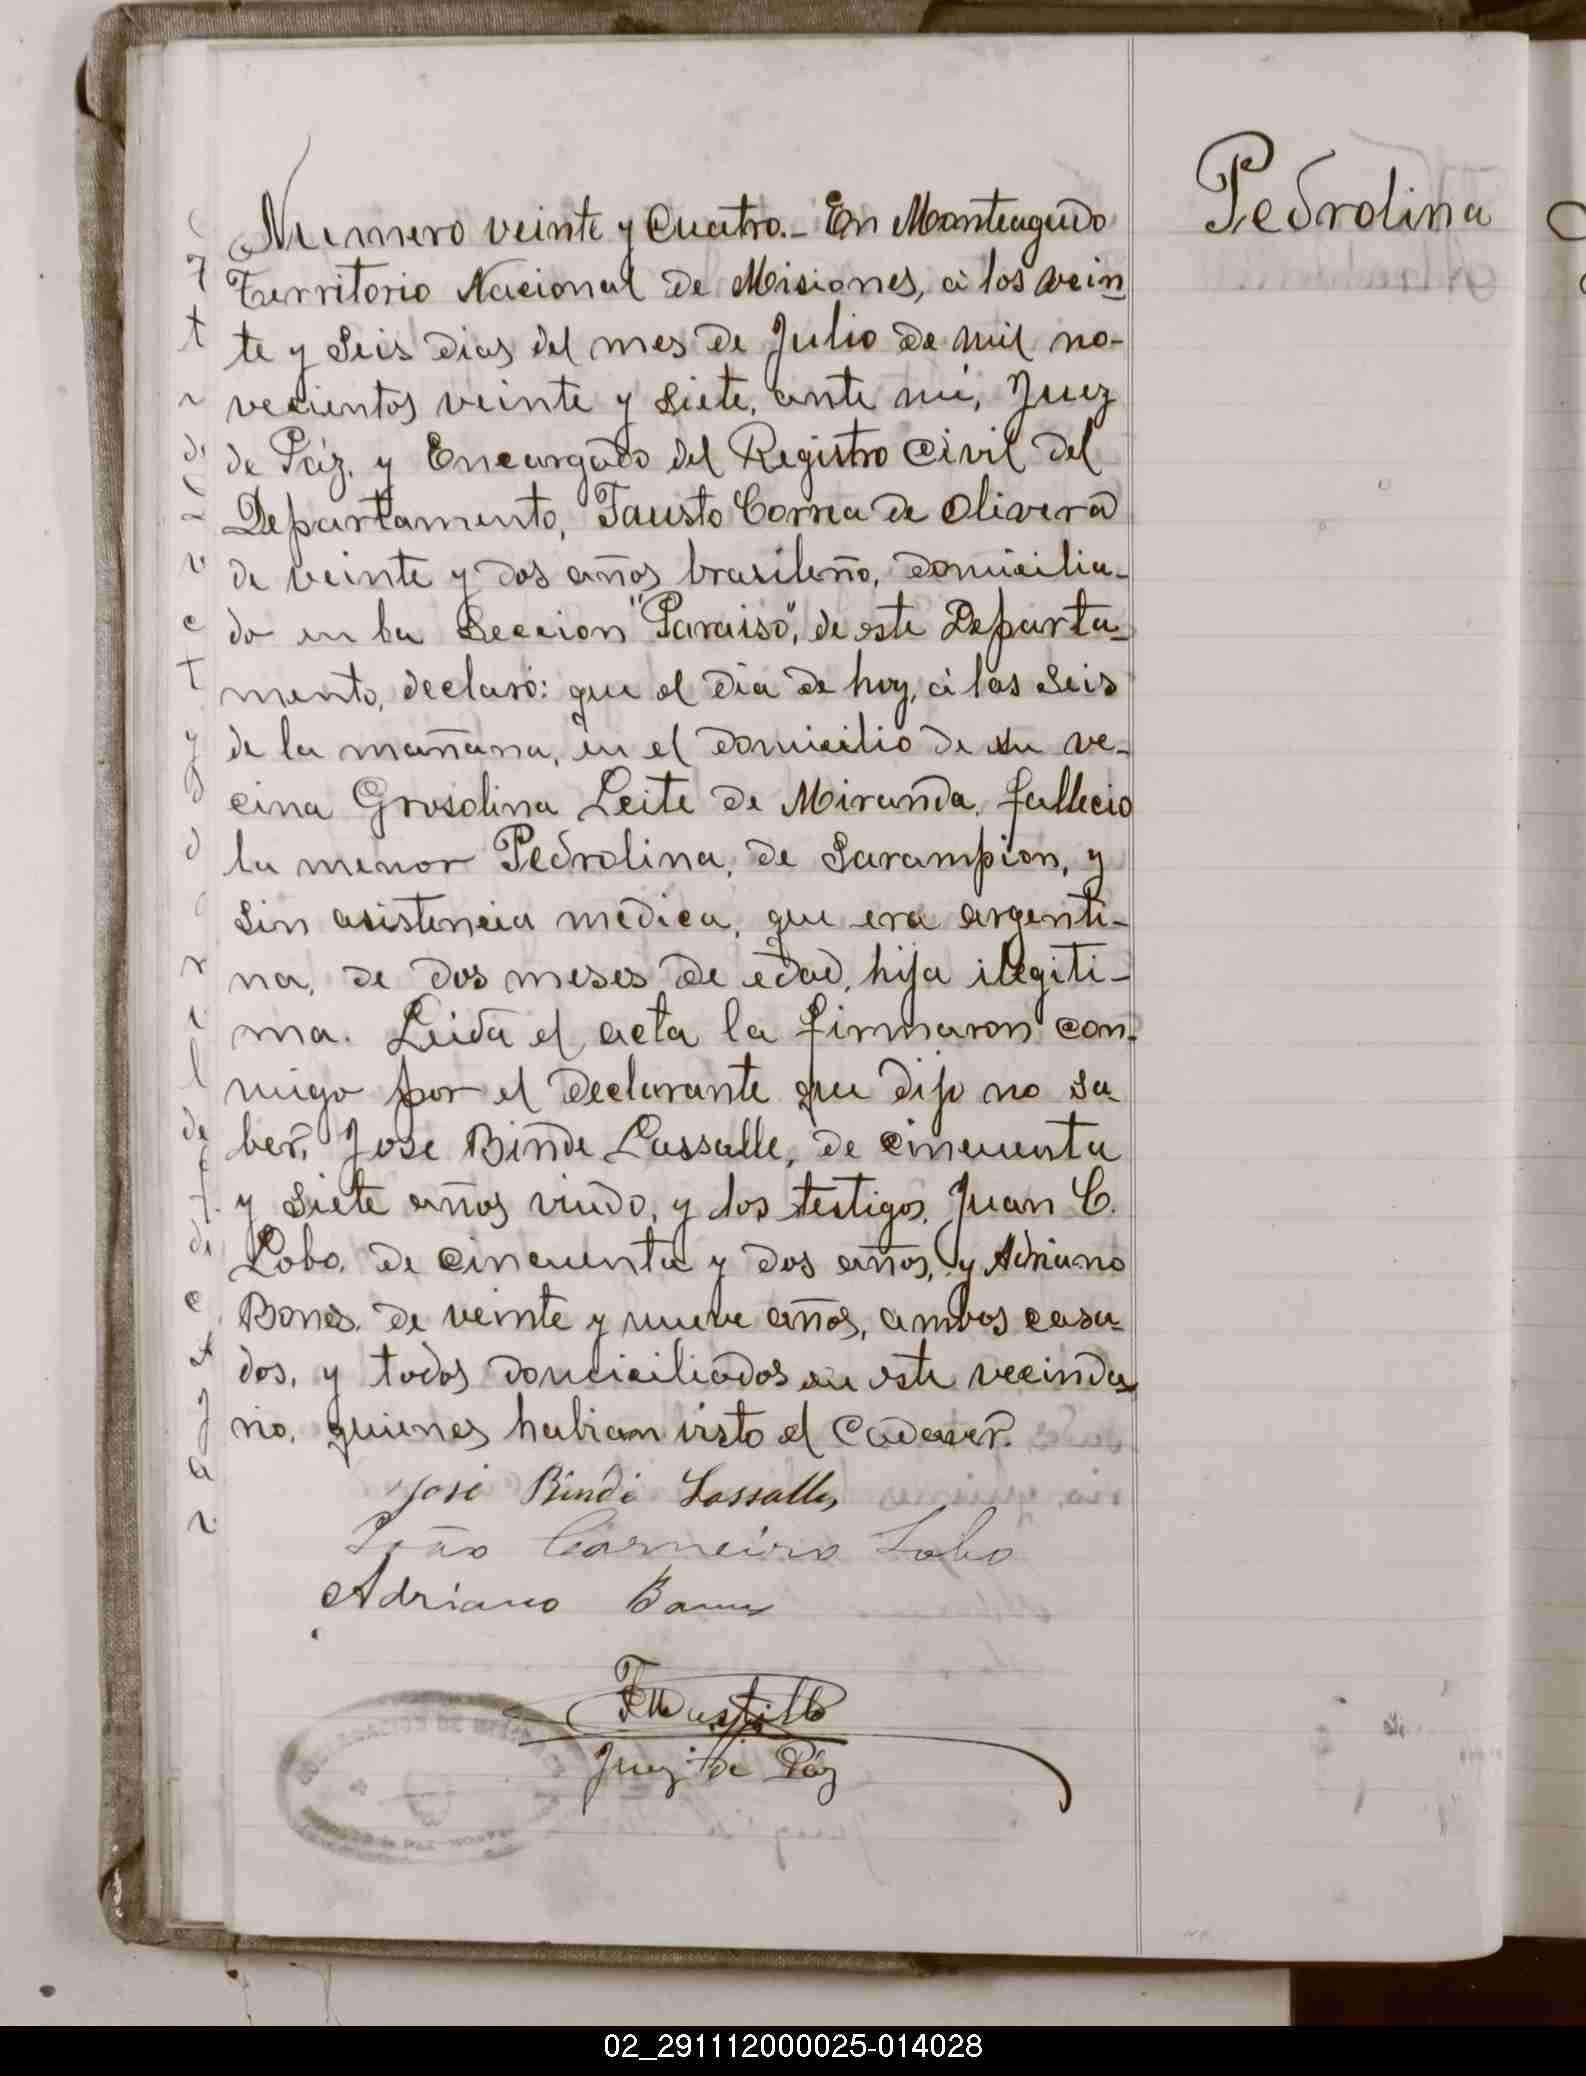 Pedrolina
Numero veinte y cuatro.- En Monteagudo
Territorio Nacional de Misiones, á los vein
te y seis dias del mes de Julio de mil no-
vecientos veinte y siete, ante mi, Juez
de Páz, y Encargado del Registro Civil del
Departamento, Fausto Correa de Olivera
de veinte y dos años brasileño, domicilia-
do en la Seccion "Paraiso", de este Departa-
mento, declaró: que el dia de hoy, á las seis
de la mañana, en el domicilio de su ve-
cina Grosolina Leite de Miranda, fallecio
la menor Pedrolina, de Sarampion, y
sin asistencia medica, que era argenti-
na, de dos meses de edad, hija ilegiti-
ma. Leida el acta la firmaron con-
migo por el declarante que dijo no sa-
ber, Jose Binde Lassalle, de cincuenta
y siete años viudo, y los testigos, Juan C.
Lobo, de cincuenta y dos años, y Adriano
Bones, de veinte y nueve años, ambos casa-
dos, y todos domiciliados en este vecinda-
rio, quienes habian visto el cadaver.
José Binde Lassalle
João Carneiro Lobo
Adriano
Juez de Páz
02_291112000025-014028